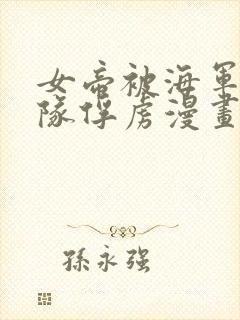 女帝被海軍
隊俘虏漫畫
孫永强